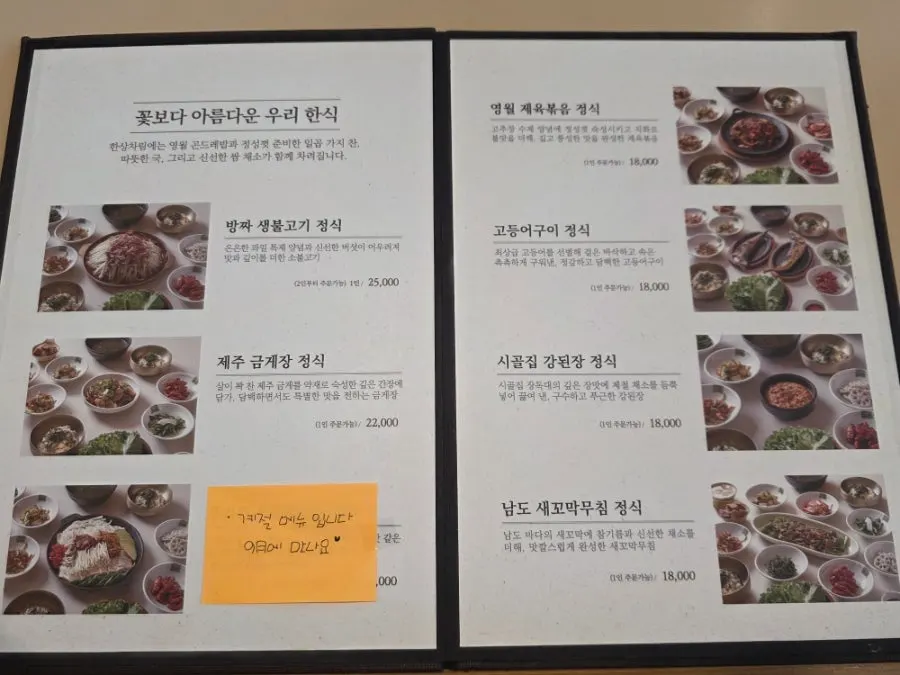 꽃보다 아름다운 우리 한식
한상차림에는 영월 곤드레밥과 정성껏 준비한 일곱 가지 찬,
따뜻한 국, 그리고 신선한 쌈 채소가 함께 차려집니다.
방짜 생불고기 정식
은은한 과일 특제 양념과 신선한 버섯이 어우러져
맛과 깊이를 더한 소불고기
(2인부터 주문가능) 1인 / 25,000
제주 금게장 정식
살이 꽉 찬 제주 금게를 약재로 숙성한 깊은 간장에
담가, 담백하면서도 특별한 맛을 전하는 금게장
(1인 주문가능) / 22,000
· 계절 메뉴 입니다
9月에 만나요♥
같은
,000
영월 제육볶음 정식
고추장 수제 양념에 정성껏 숙성시키고 직화로
불맛을 더해, 깊고 풍성한 맛을 완성한 제육볶음
(1인 주문가능) / 18,000
고등어구이 정식
최상급 고등어를 선별해 겉은 바삭하고 속은
촉촉하게 구워낸, 정갈하고 담백한 고등어구이
(1인 주문가능) / 18,000
시골집 강된장 정식
시골집 장독대의 깊은 장맛에 제철 채소를 듬뿍
넣어 끓여 낸, 구수하고 푸근한 강된장
(1인 주문가능) / 18,000
남도 새꼬막무침 정식
남도 바다의 새꼬막에 참기름과 신선한 채소를
더해, 맛깔스럽게 완성한 새꼬막무침
(1인 주문가능) / 18,000